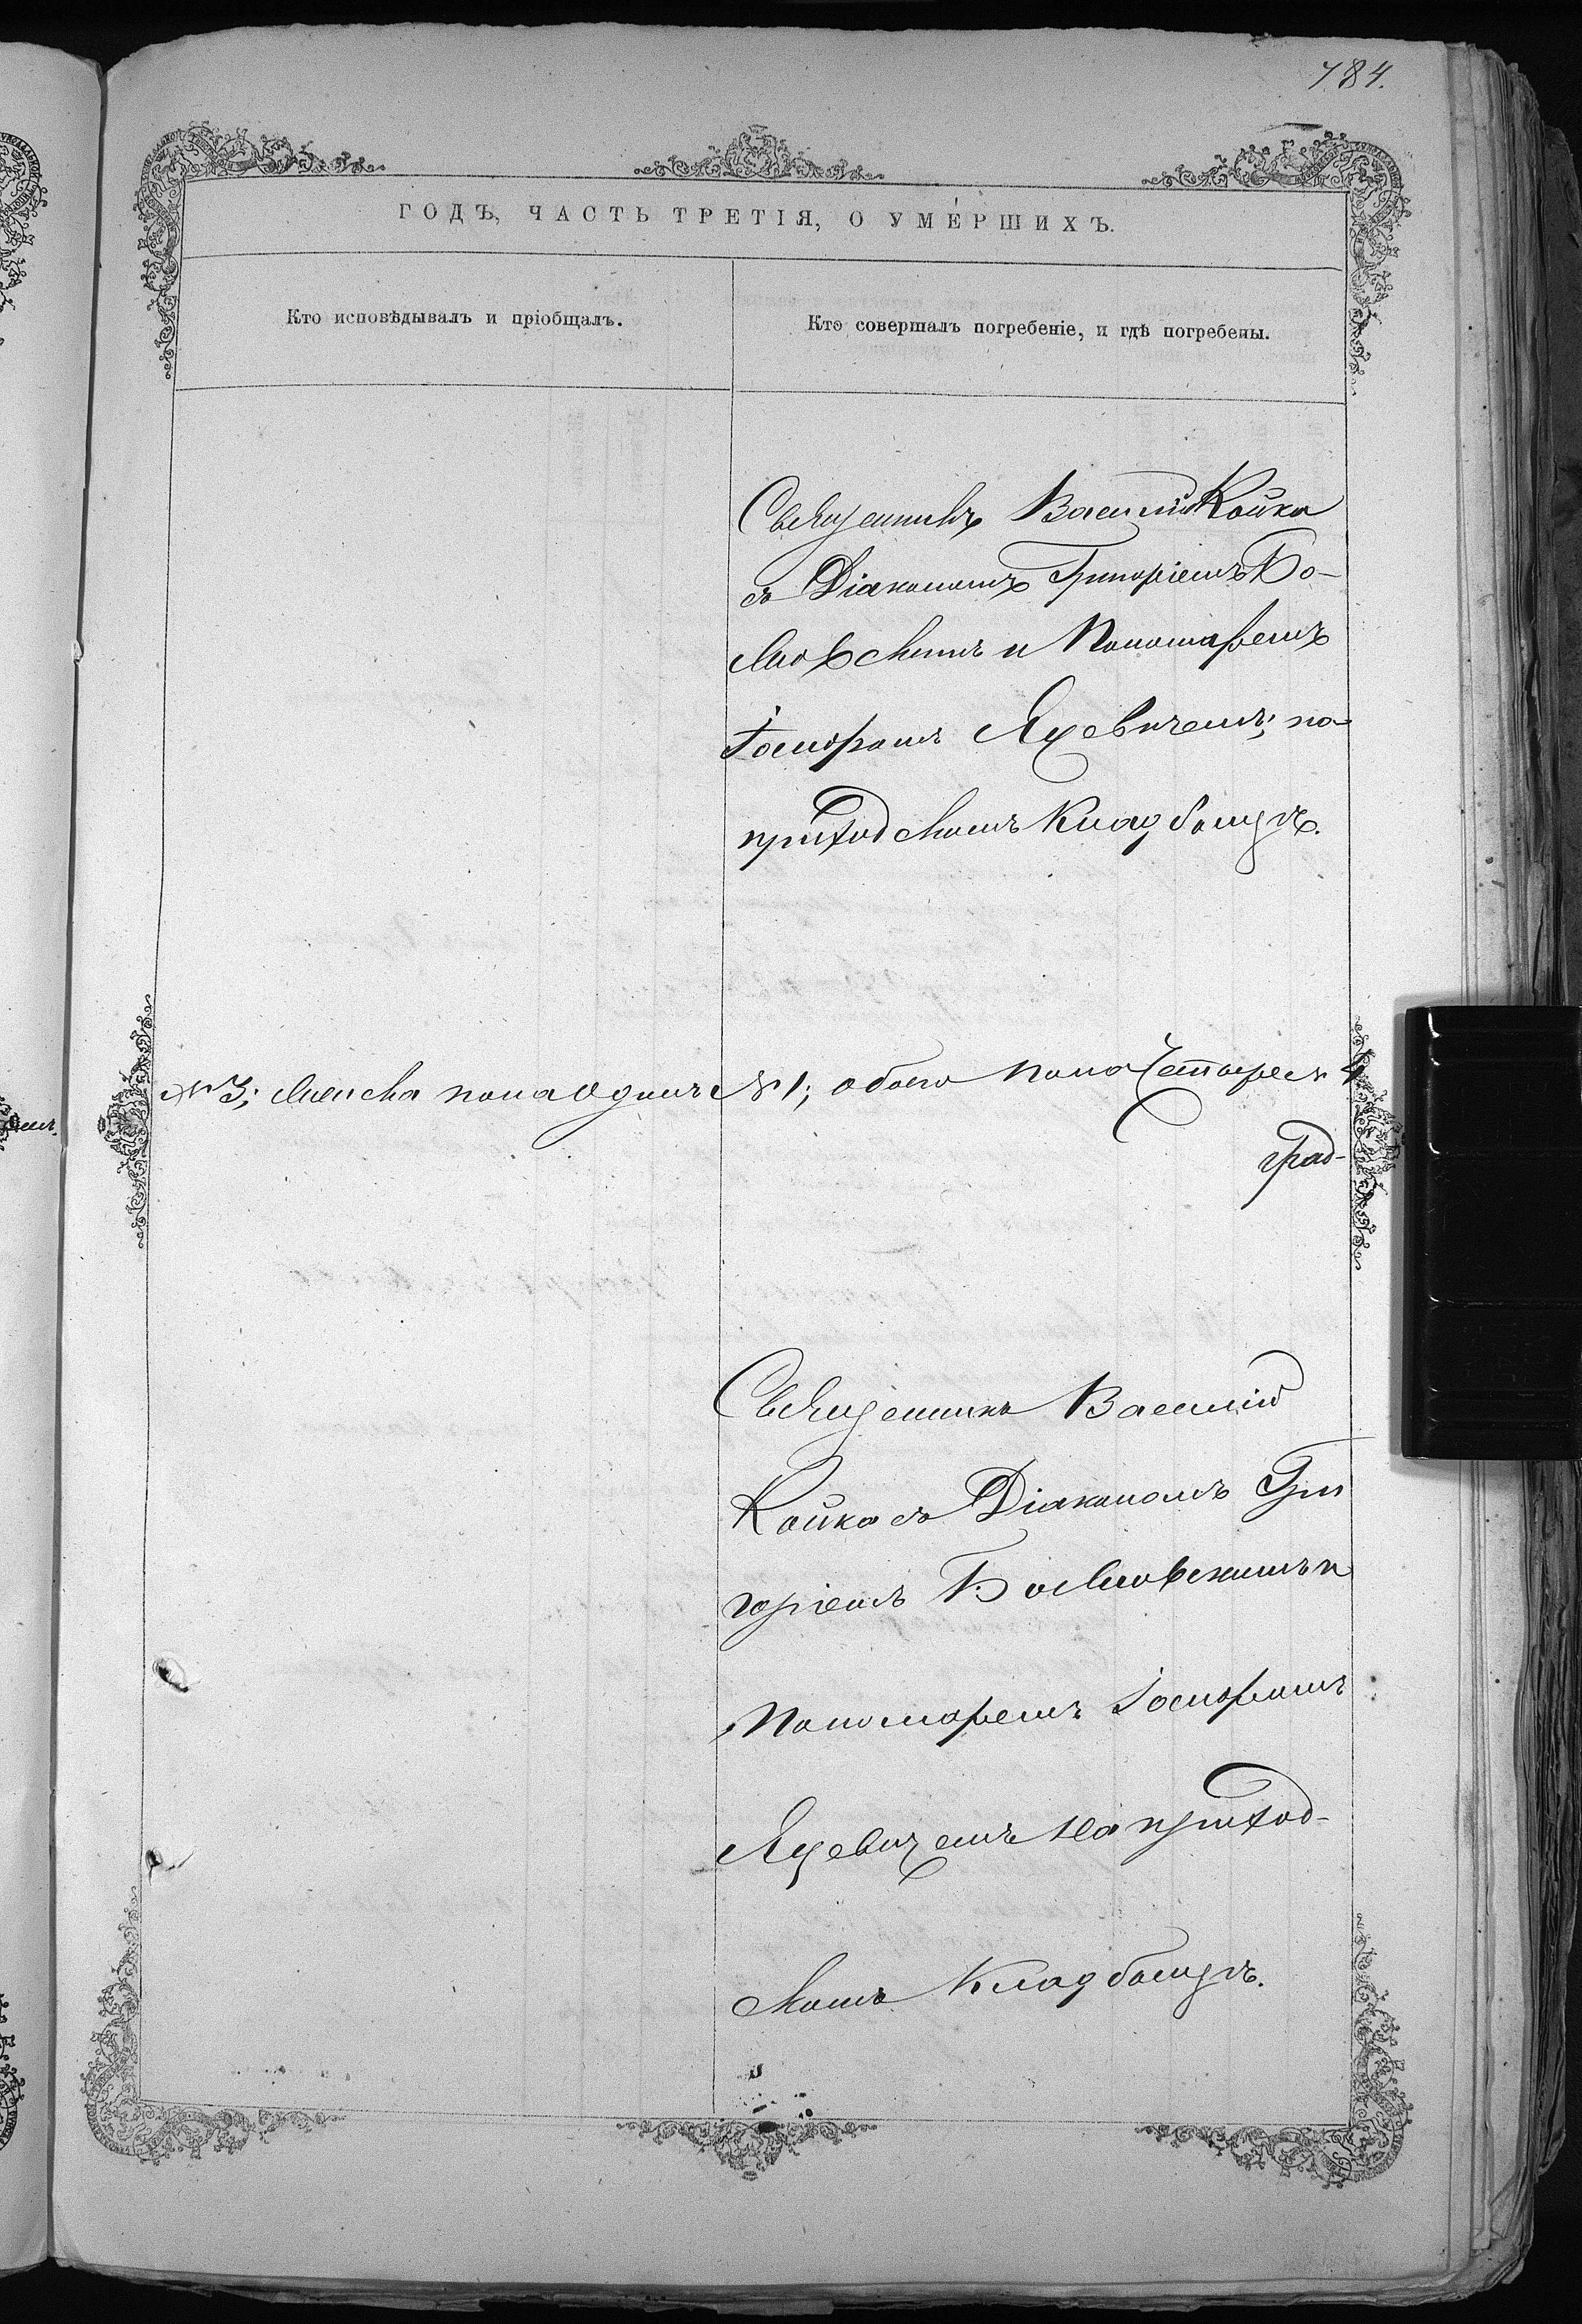 784.
ГОДЪ, ЧАСТЬ ТРЕТІЯ, О УМЕ́РШИХЪ.
Кто исповѣдывалъ и пріобщалъ.
Кто совершалъ погребеніе, и гдѣ погребены.
Священникъ Василій Койко
съ Діакономъ Григоріемъ Бо-
славскимъ и Пономаремъ
Іосифомъ Яцевичемъ; на
приходскомъ Кладбищѣ.
№ 3; женска пола одинъ № 1; обоего пола Четыре № 4
Священникъ Василій
Койко съ Діакономъ Гри
горіемъ Бославскимъ и
Пономаремъ Іосифомъ
Яцевичемъ на приход-
скомъ Кладбищѣ.